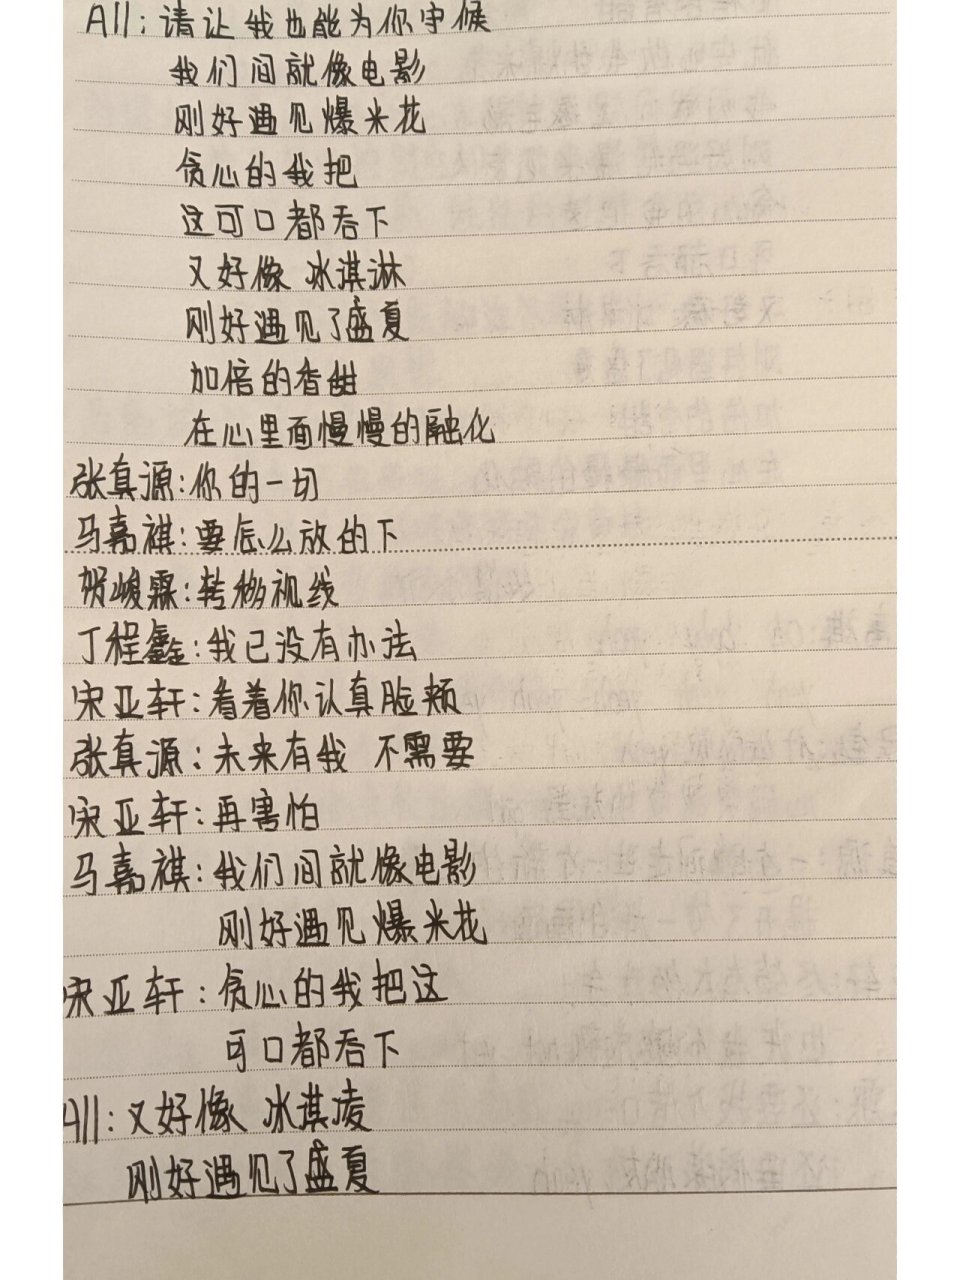 All：请让我也能为你守候
我们间就像电影
刚好遇见爆米花
贪心的我把
这可口都吞下
又好像 冰淇淋
刚好遇见了盛夏
加倍的香甜
在心里面慢慢的融化
张真源：你的一切
马嘉祺：要怎么放的下
贺峻霖：转移视线
丁程鑫：我已没有办法
宋亚轩：看着你认真脸颊
张真源：未来有我 不需要
宋亚轩：再害怕
马嘉祺：我们间就像电影
刚好遇见爆米花
宋亚轩：贪心的我把这
可口都吞下
All：又好像 冰淇凌
刚好遇见了盛夏